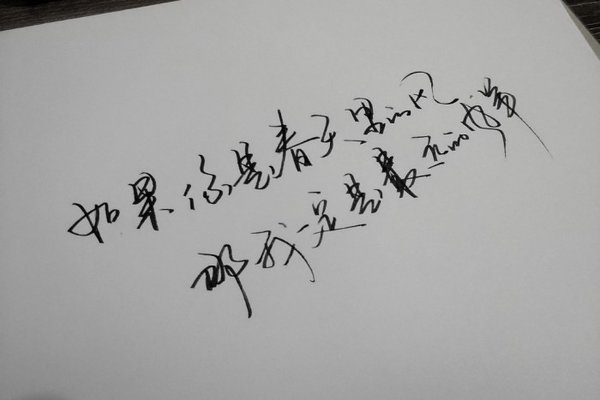 如果你是春天里的风
那我一定是春天的